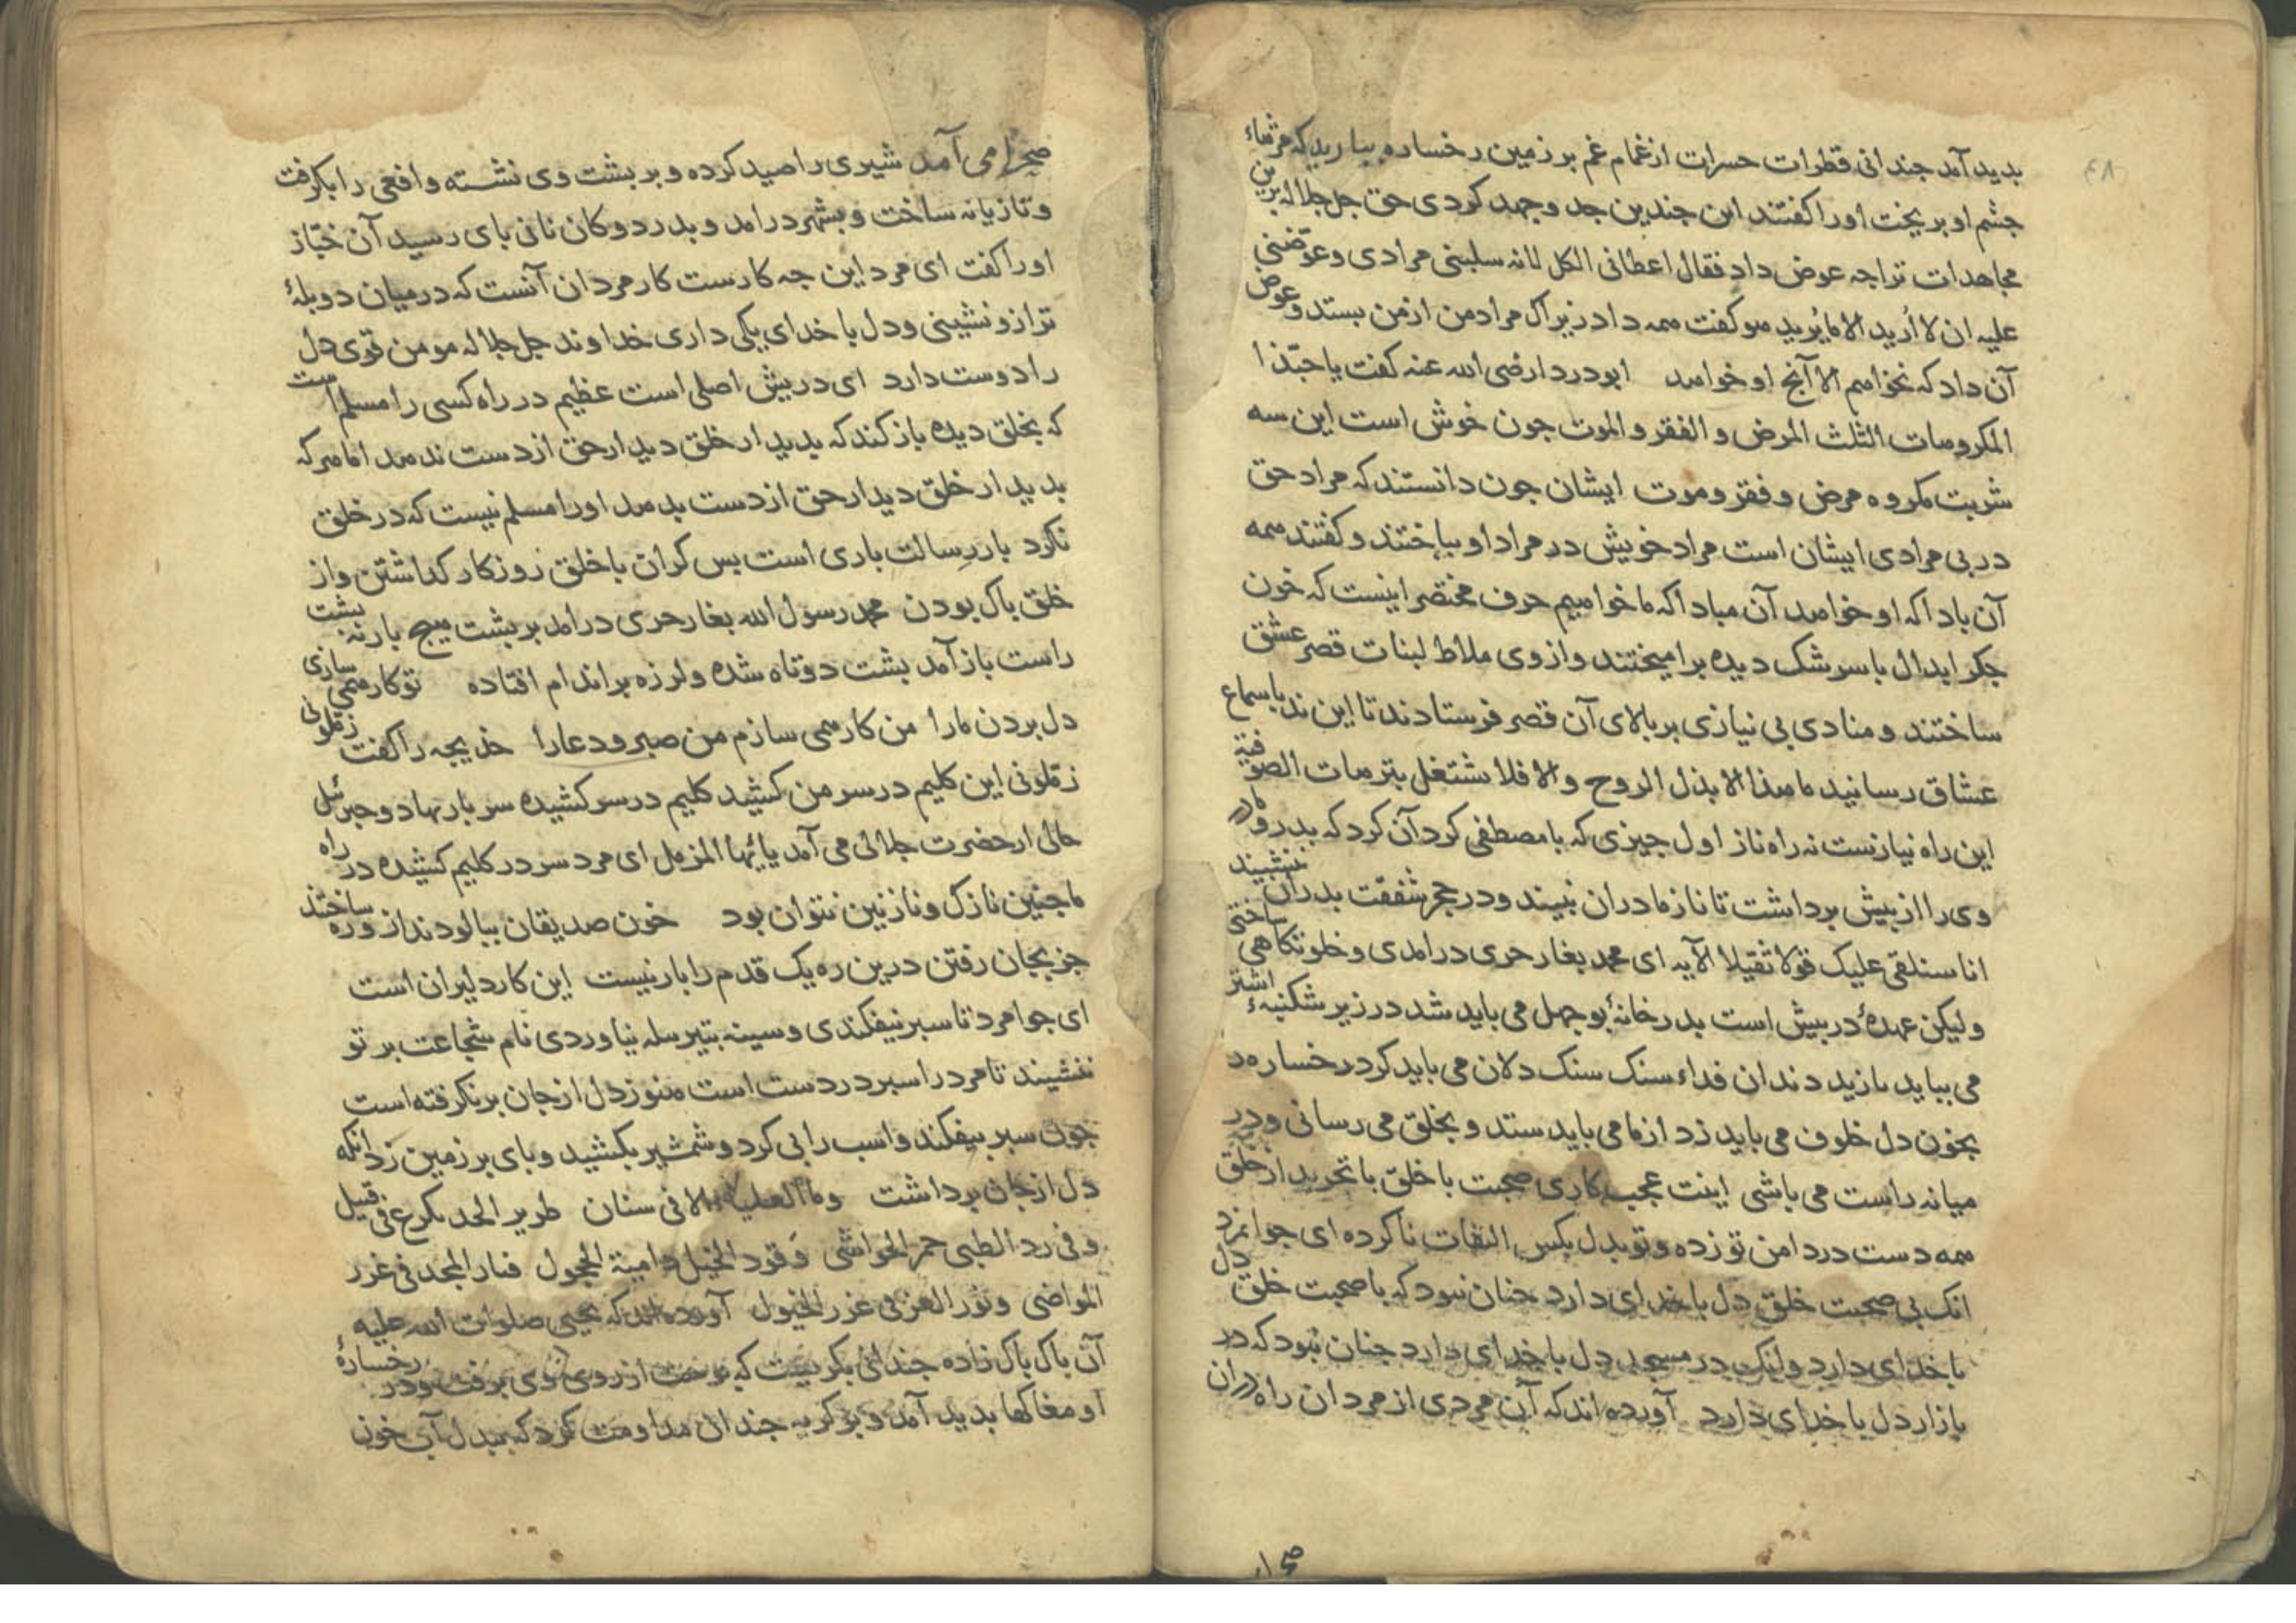 بدید آمد جندانی قطرات حسرات از غمام غم بر زمین رخساره ببارید که مژهاء
جشم او بریخت اورا کفتند این جندین جد وجهد کردی حق جل جلاله برین
مجاهدات ترا جه عوض داد فقال اعطانی الکل لانه سلبنی مرادی وعوّضنی
علیه ان لا اُرید الا ما یُرید هو کفت همه داد زیراک مراد من از من بستد وعوض
آن داد که نخواهم الا آنج او خواهد ابو دردا رضی الله عنه کفت یا حبّذا
المکروهات الثلث المرض والفقر والموت جون خوش است این سه
شربت مکروه مرض وفقر وموت ایشان جون دانستند که مراد حق
در بی مرادی ایشان است مراد خویش در مراد او بباختند وکفتند همه
آن باد اکه او خواهد آن مباد اکه ما خواهیم حرف مختصر اینست که خون
جکر ابدال با سرشک دیده برامیختند و از وی ملاط لبنات قصر عشق
ساختند ومنادی بی نیازی بر بالای آن قصر فرستادند تا این ندا باسماع
عشاق رسانید ما هذا الا بذل الروح والا فلا تشتغل بترهات الصوفیة
این راه نیازست نه راه ناز اول جیزی که با مصطفی کرد آن کرد که بدر و مادر
وی را از بیش برداشت تا ناز مادران نبیند ودر حجر شفقت بدران ننشیند
انا سنلقی علیک قولا ثقیلا الآیه ای محمد بغار حری درامدی و خلوتکاهی ساختی
ولیکن عهدهٔ در بیش است بدر خانهٔ بوجهل می باید شد در زیر شکنبهٔ اشتر
می بباید بازید دندان فداء سنک سنک دلان می باید کرد رخساره را
بخون دل خلوف می باید زد از ما می باید ستد و بخلق می رسانی و در
میانه راست می باشی اینت عجب کاری صحبت با خلق با تجرید از خلق
همه دست در دامن تو زده وتو بدل بکس التفات ناکرده ای جوانمرد
انک بی صحبت خلق دل با خدای دارد جنان نبود که با صحبت خلق دل
با خدای دارد ولیک در مسجد دل با خدای دارد جنان نبود که در
بازار دل با خدای دارد آورده اند که آن مردی از مردان راه دران
صحرا می آمد شیری را صید کرده وبر بشت وی نشسته وافعی را بکرفت
وتازیانه ساخت وبشهر درامد وبدر دوکان نانی بای رسید آن خبّاز
اورا کفت ای مرد این جه کارست کار مردان آنست که در میان دو بلهٔ
ترازو نشینی ودل با خدای یکی داری خداوند جل جلاله مومن قوی دل
را دوست دارد ای دریش اصلی است عظیم در راه کسی را مسلم است
که بخلق دیده باز کند که بدیدار خلق دیدار حق از دست ندهد اما هر که
بدیدار خلق دیدار حق از دست بدهد اورا مسلم نیست که در خلق
نکرد بار رسالت باری است بس کران با خلق روزکار کذاشتن واز
خلق باک بودن محمد رسول الله بغار حری درامد بر بشت هیج بار نه بشت
راست باز آمد بشت دوتاه شده ولرزه بر اندام افتاده تو کار همی سازی
دل بردن مارا من کار همی سازم من صبر ودعارا خدیجه را کفت زملونی
زملونی این کلیم در سر من کشید کلیم در سر کشیده سر باز نهاد وجبرئیل
حالی از حضرت جلالی می آمد یا ایها المزمل ای مرد سر در کلیم کشیده در راه
ما جنین نازک ونازنین نتوان بود خون صدیقان ببالودند از و ره ساختند
جز بجان رفتن درین ره یک قدم را بار نیست این کار دلیران است
ای جوامرد تا سبر نیفکندی وسینه بتیر سله نیاوردی نام شجاعت بر تو
ننشیند تا مرد را سبر در دست است هنوز دل از جان برنکرفته است
جون سبر بیفکند واسب را بی کرد وشمشیر بکشید وبای بر زمین زد انکه
دل از جان برداشت وما العلیاء الا فی سنان طریر الحد یکرع فی قتیل
وفی رد الظبی حمر الحواشی وقود الخیل دامیة الحجول فنار المجد فی غرر
المواضی ونور العز فی غرر الخیول آورده اند که یحیی صلوات الله علیه
آن باک باک زاده جندانی بکریست که بوست از روی وی برفت ودر رخسارهٔ
او مغاکها بدید آمد وبر کریه جندان مداومت کرد که ببدل آب خون
صحرا